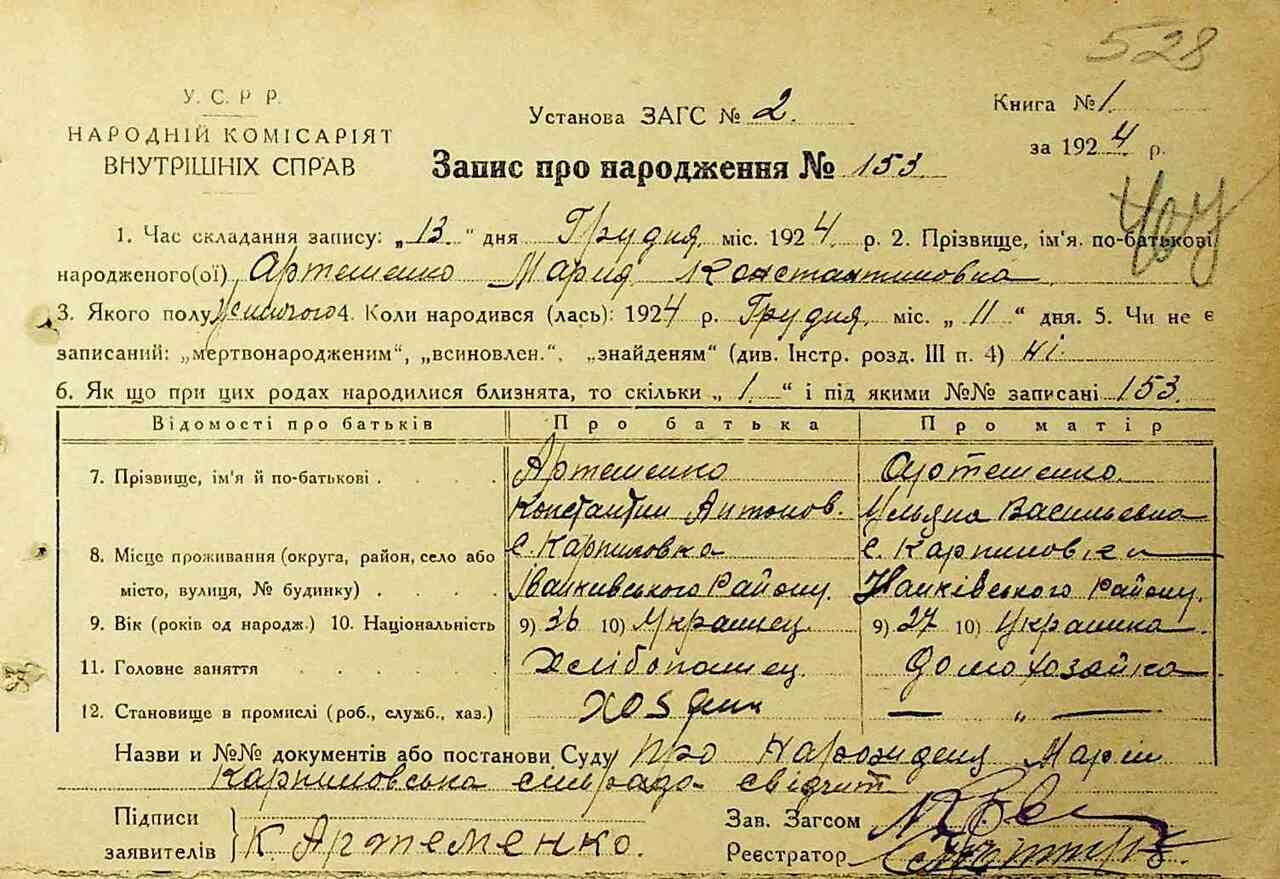 528
У. С. Р Р.
НАРОДНІЙ КОМІСАРІЯТ
ВНУТРІШНІХ СПРАВ
Установа ЗАГС № 2.
Книга № 1.
за 1924 р.
Запис про народження № 153.
1. Час складання запису: „13“ дня Грудня, міс. 1924. р. 2. Прізвище, ім'я. по-батькові
народженого(ої) Артеменко Мария Константиновна
3. Якого полу жіночого 4. Коли народився (лась): 1924 р. Грудня, міс. „11“ дня. 5. Чи не є
записаний: „мертвонародженим“, „всиновлен.“, „знайденям“ (див. Інстр. розд. III п. 4) ні.
6. Як що при цих родах народилися близнята, то скільки „1.“ і під якими №№ записані 153.
Відомості про батьків Про батька Про матір
7. Прізвище, ім'я й по-батькові . . . . Артеменко Артеменко.
Константин Антонов. Ульяна Васильевна
8. Місце проживання (округа, район, село або с. Карпиловка с. Карпиловка
місто, вулиця, № будинку) . . . . Іванкивського Району. Іванківського Району.
9. Вік (років од народж.) 10. Національність 9) 36 10) Украинец 9) 27 10) Украинка.
11. Головне заняття . . . . . Хлібопашец. Домохозайка
12. Становище в промислі (роб., служб., хаз.) хозяин — „ —
Назви и №№ документів або постанови Суду Про Народженя Марїи
Карпиловська сільрада свідчит
Підписи
заявителів К. Артеменко.
Зав. Загсом
Реєстратор